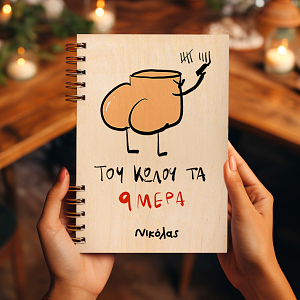 ΤΟΥ ΚΩΛΟΥ ΤΑ
9ΜΕΡΑ
Νικόλας